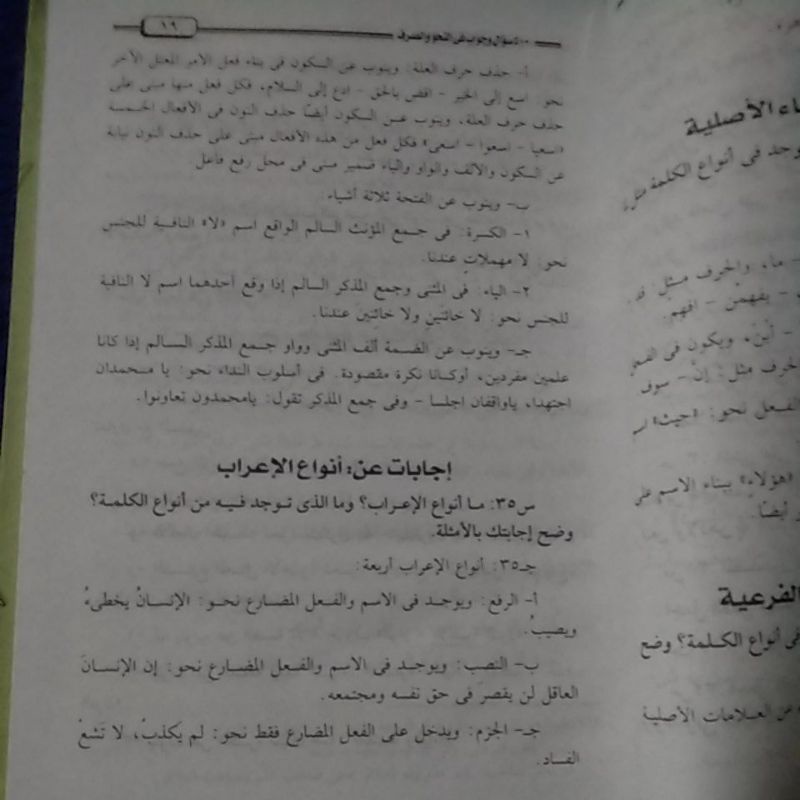 ١٩
٥٠٠ سؤال وجواب في النحو والصرف
أ- حذف حرف العلة: وينوب عن السكون فى بناء فعل الأمر المعتل الآخر
نحو: اسع إلى الخير - اقض بالحق - ادع إلى السلام، فكل فعل منها مبنى على
حذف حرف العلة، وينوب عن السكون أيضًا حذف النون فى الأفعال الخمسة
«اسعيا - اسعوا - اسعى» فكل فعل من هذه الأفعال مبنى على حذف النون نيابة
عن السكون والألف والواو والياء ضمير مبنى فى محل رفع فاعل
ب- وينوب عن الفتحة ثلاثة أشياء:
١- الكسرة: فى جمع المؤنث السالم الواقع اسم «لا» النافية للجنس
نحو: لا مهملاتِ عندنا.
٢- الياء: فى المثنى وجمع المذكر السالم إذا وقع أحدهما اسم لا النافية
للجنس نحو: لا خائنَينِ ولا خائنينَ عندنا.
جـ- وينوب عن الضمة ألف المثنى وواو جمع المذكر السالم إذا كانا
علمين مفردين، أوكانا نكرة مقصودة. فى أسلوب النداء نحو: يا محمدان
اجتهدا، ياواقفان اجلسا - وفى جمع المذكر تقول: يامحمدون تعاونوا.
إجابات عن: أنواع الإعراب
س٣٥: ما أنواع الإعراب؟ وما الذى توجد فيه من أنواع الكلمة؟
وضح إجابتك بالأمثلة.
جـ٣٥: أنواع الإعراب أربعة:
أ- الرفع: ويوجد فى الاسم والفعل المضارع نحو: الإنسانُ يخطىءُ
ويصيبُ.
ب- النصب: ويوجد فى الاسم والفعل المضارع نحو: إن الإنسانَ
العاقل لن يقصرَ فى حق نفسه ومجتمعه.
جـ- الجزم: ويدخل على الفعل المضارع فقط نحو: لم يكذبْ، لا تَشعْ
الفساد.
اء الأصلية
وجد فى أنواع الكلمة
- ماء، والحرف مثل: قد
- يفهمْن - افهمْ.
- أينَ، ويكون فى الفعل
لحرف مثل: إنَّ - سوف
لفعل نحو: «حيث»
«هؤلاءِ» ببناء الاسم على
أيضًا.
الفرعية
فى أنواع الكلمة؟ وضح
عن العلامات الأصلية